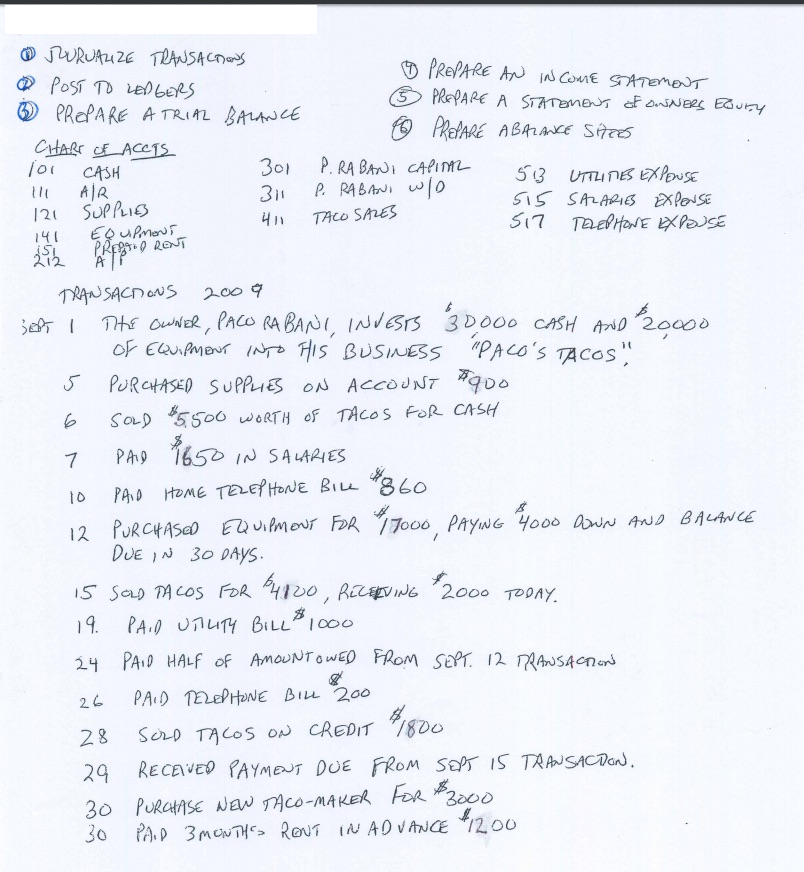 ① JOURNALIZE TRANSACTIONS
② POST TO LEDGERS
③ PREPARE A TRIAL BALANCE
④ PREPARE AN INCOME STATEMENT
⑤ PREPARE A STATEMENT OF OWNERS EQUITY
⑥ PREPARE A BALANCE SHEET
CHART OF ACCTS
101 CASH
111 A/R
121 SUPPLIES
141 EQUIPMENT
151 PREPAID RENT
212 A/P
301 P. RABANI CAPITAL
311 P. RABANI W/D
411 TACO SALES
513 UTILITIES EXPENSE
515 SALARIES EXPENSE
517 TELEPHONE EXPENSE
TRANSACTIONS 2009
SEPT 1 THE OWNER, PACO RABANI, INVESTS $30,000 CASH AND $20,000
OF EQUIPMENT INTO HIS BUSINESS "PACO'S TACOS".
5 PURCHASED SUPPLIES ON ACCOUNT $900
6 SOLD $5,500 WORTH OF TACOS FOR CASH
7 PAID $1650 IN SALARIES
10 PAID HOME TELEPHONE BILL $860
12 PURCHASED EQUIPMENT FOR $17000, PAYING $4000 DOWN AND BALANCE
DUE IN 30 DAYS.
15 SOLD TACOS FOR $4100, RECEIVING $2000 TODAY.
19. PAID UTILITY BILL $1000
24 PAID HALF OF AMOUNT OWED FROM SEPT. 12 TRANSACTION
26 PAID TELEPHONE BILL $200
28 SOLD TACOS ON CREDIT $1800
29 RECEIVED PAYMENT DUE FROM SEPT 15 TRANSACTION.
30 PURCHASE NEW TACO-MAKER FOR $3000
30 PAID 3 MONTHS RENT IN ADVANCE $1200